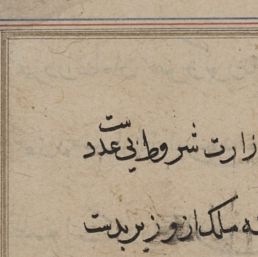 زارت شروط بی عددست
ه ملک از وزیر بدست